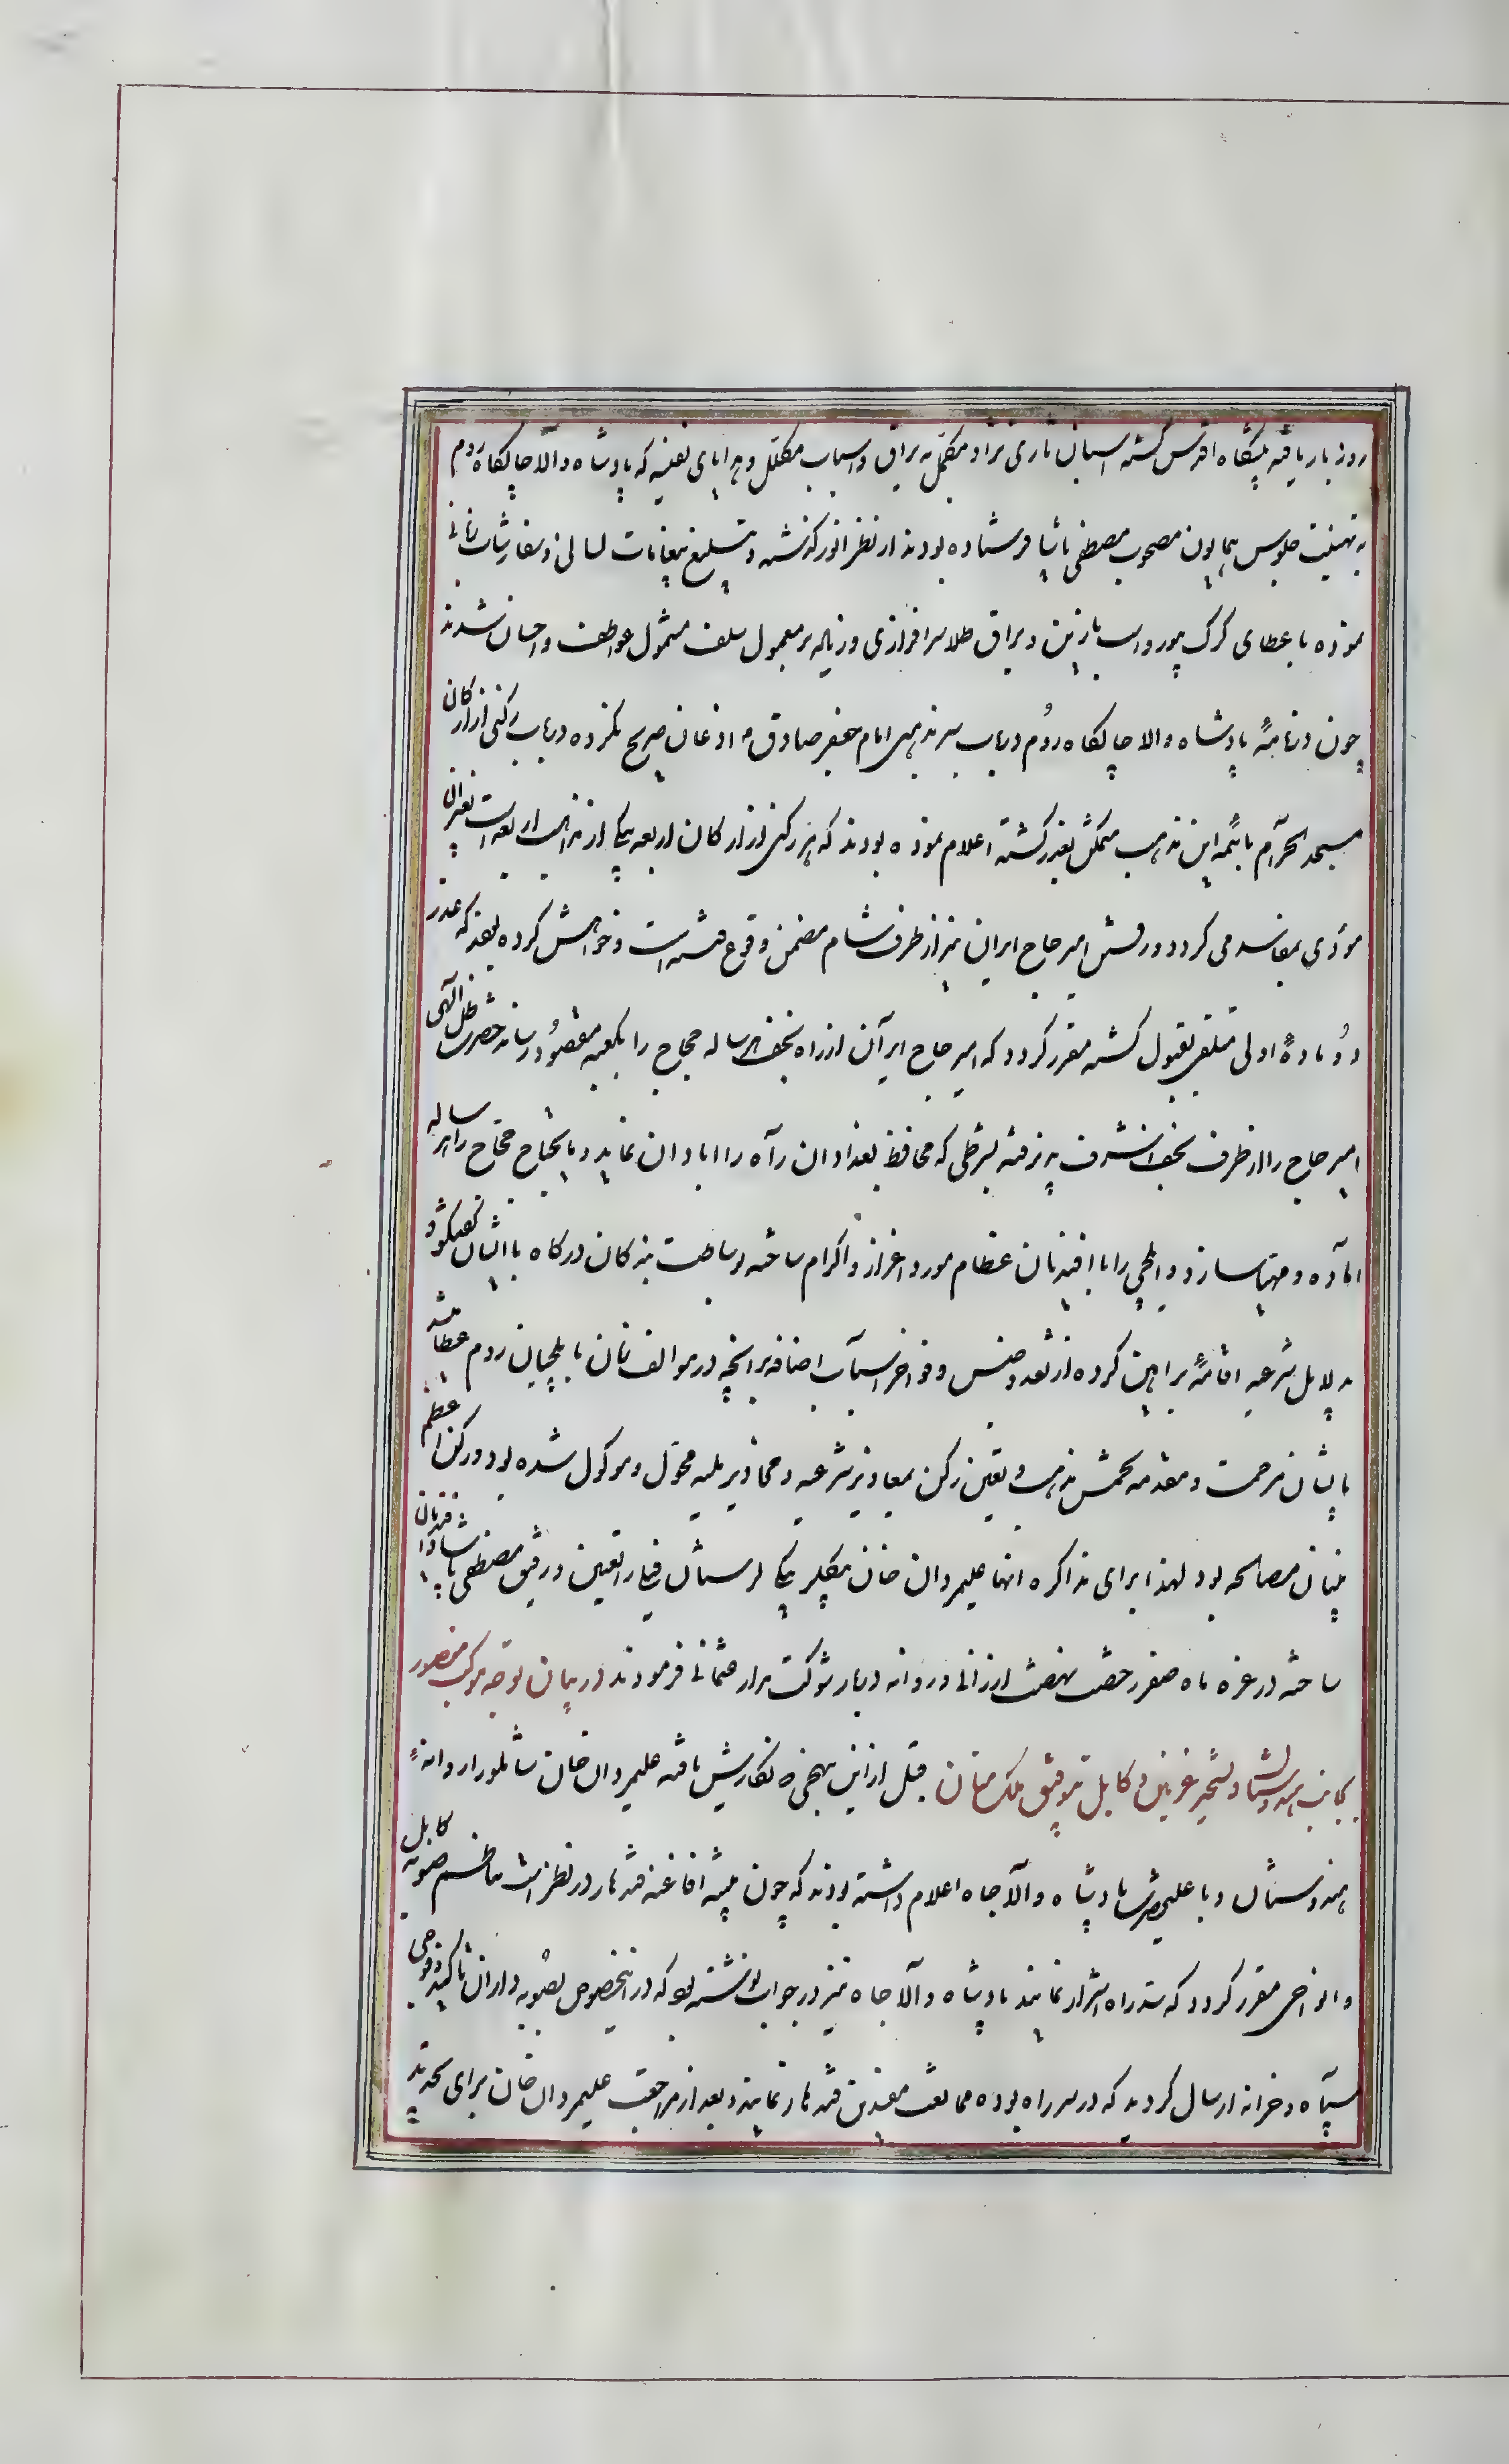 روز بار یافته پیشگاه اقدس گشته اسبان تازی نژاد مکمل به یراق و اسباب مکلل و هدایای نفیسه که پادشاه والا جایگاه روم
به تهنیت جلوس همایون مصحوب مصطفی پاشا فرستاده بودند از نظر انور گذشته و تبلیغ پیغامات لسانی و سفارشات زبانی
نموده با عطای کرک سمور و اسب با زین و یراق طلا سرافرازی و زیاده بر معمول سلف مشمول عواطف و احسان شدند
چون در نامهٔ پادشاه والا جایگاه رُوم در باب مذهب امام جعفر صادق اذعان صریح نکرده در باب رکنی از ارکان
مسجد الحرام بائمه این مذهب متمسک بعذر گشته اعلام نموده بودند که هر رکنی از ارکان اربعه بیکی از مذاهب اربعه است تغیر آن
مودی بمفاسد می گردد و رفتن امیر حاج ایران نیز از طرف شام متضمن وقوع فتنه است و خواهش کرده بودند که عذر
دو مادهٔ اولی متلقی بقبول گشته مقرر گردد که امیر حاج ایران از راه نجف هر ساله حجاج را بکعبه مقصود رساند حضرت ظل الهی
امیر حاج را از طرف نجف اشرف پذیرفته بشرطی که محافظ بغداد ان راه را ابادان نماید و مایحتاج حجاج را هر ساله
اماده و مهیا سازد و ایلچی را با افندیان عظام مورد اعزاز و اکرام ساخته بوساطت بندگان درگاه با ایشان گفتگو و
بدلایل شرعیه اقامهٔ براهین کرده از نقد و جنس و فواخر اسباب اضافه بر انچه در سوالف زمان بایلچیان روم عطا شده
بایشان مرحمت و مقدمه تخمیس مذهب و تعین رکن بمعاذیر شرعیه و محاذیر ملیه محول و موکول شده بود و رکن اعظم
بنیان مصالحه بود لهذا برای مذاکره انها علیمردان خان بیگلر بیگی لرستان فیلی را تعیین و رفیق مصطفی پاشا و افندیان
ساخته در غره ماه صفر رخصت نهضت ارزانی و روانه دربار شوکت مدار عثمانی فرمودند در بیان توجه موکب منصور
بجانب هندوستان و تسخیر غزنین و کابل بتوفیق ملک منان قبل از این بهجزه نگارش یافته علیمردان خان شاملو را روانهٔ
هندوستان و با علیحضرت پادشاه والا جاه اعلام داشته بودند که چون تنبیه افاغنه قندهار در نظر است بناظم صوبه کابل
و انواحی مقرر گردد که سد راه اشرار نمایند پادشاه والا جاه نیز در جواب نوشته بود که در اینخصوص بصوبه داران تاکید و فوجی
سپاه و خزانه ارسال گردید که در سر راه بوده ممانعت مفسدین قندهار نمایند و بعد از مراجعت علیمردان خان برای تجدید